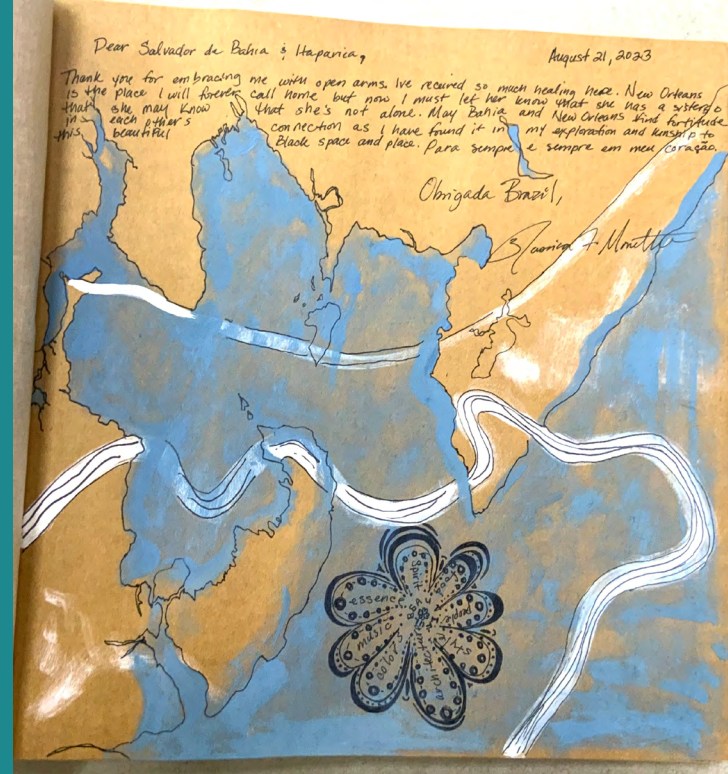 Dear Salvador de Bahia & Itaparica,
August 21, 2023
Thank you for embracing me with open arms. Ive recieved so much healing here. New Orleans
is the place I will forever call home but now I must let her know that she has a sister
that she may know that she's not alone. May Bahia and New Orleans find fortitude
in each other's connection as I have found it in my exploration and kinship to
this beautiful Black space and place. Para sempre e sempre em meu coração.
Obrigada Brazil,
spirit
essence
music
colors
people
style